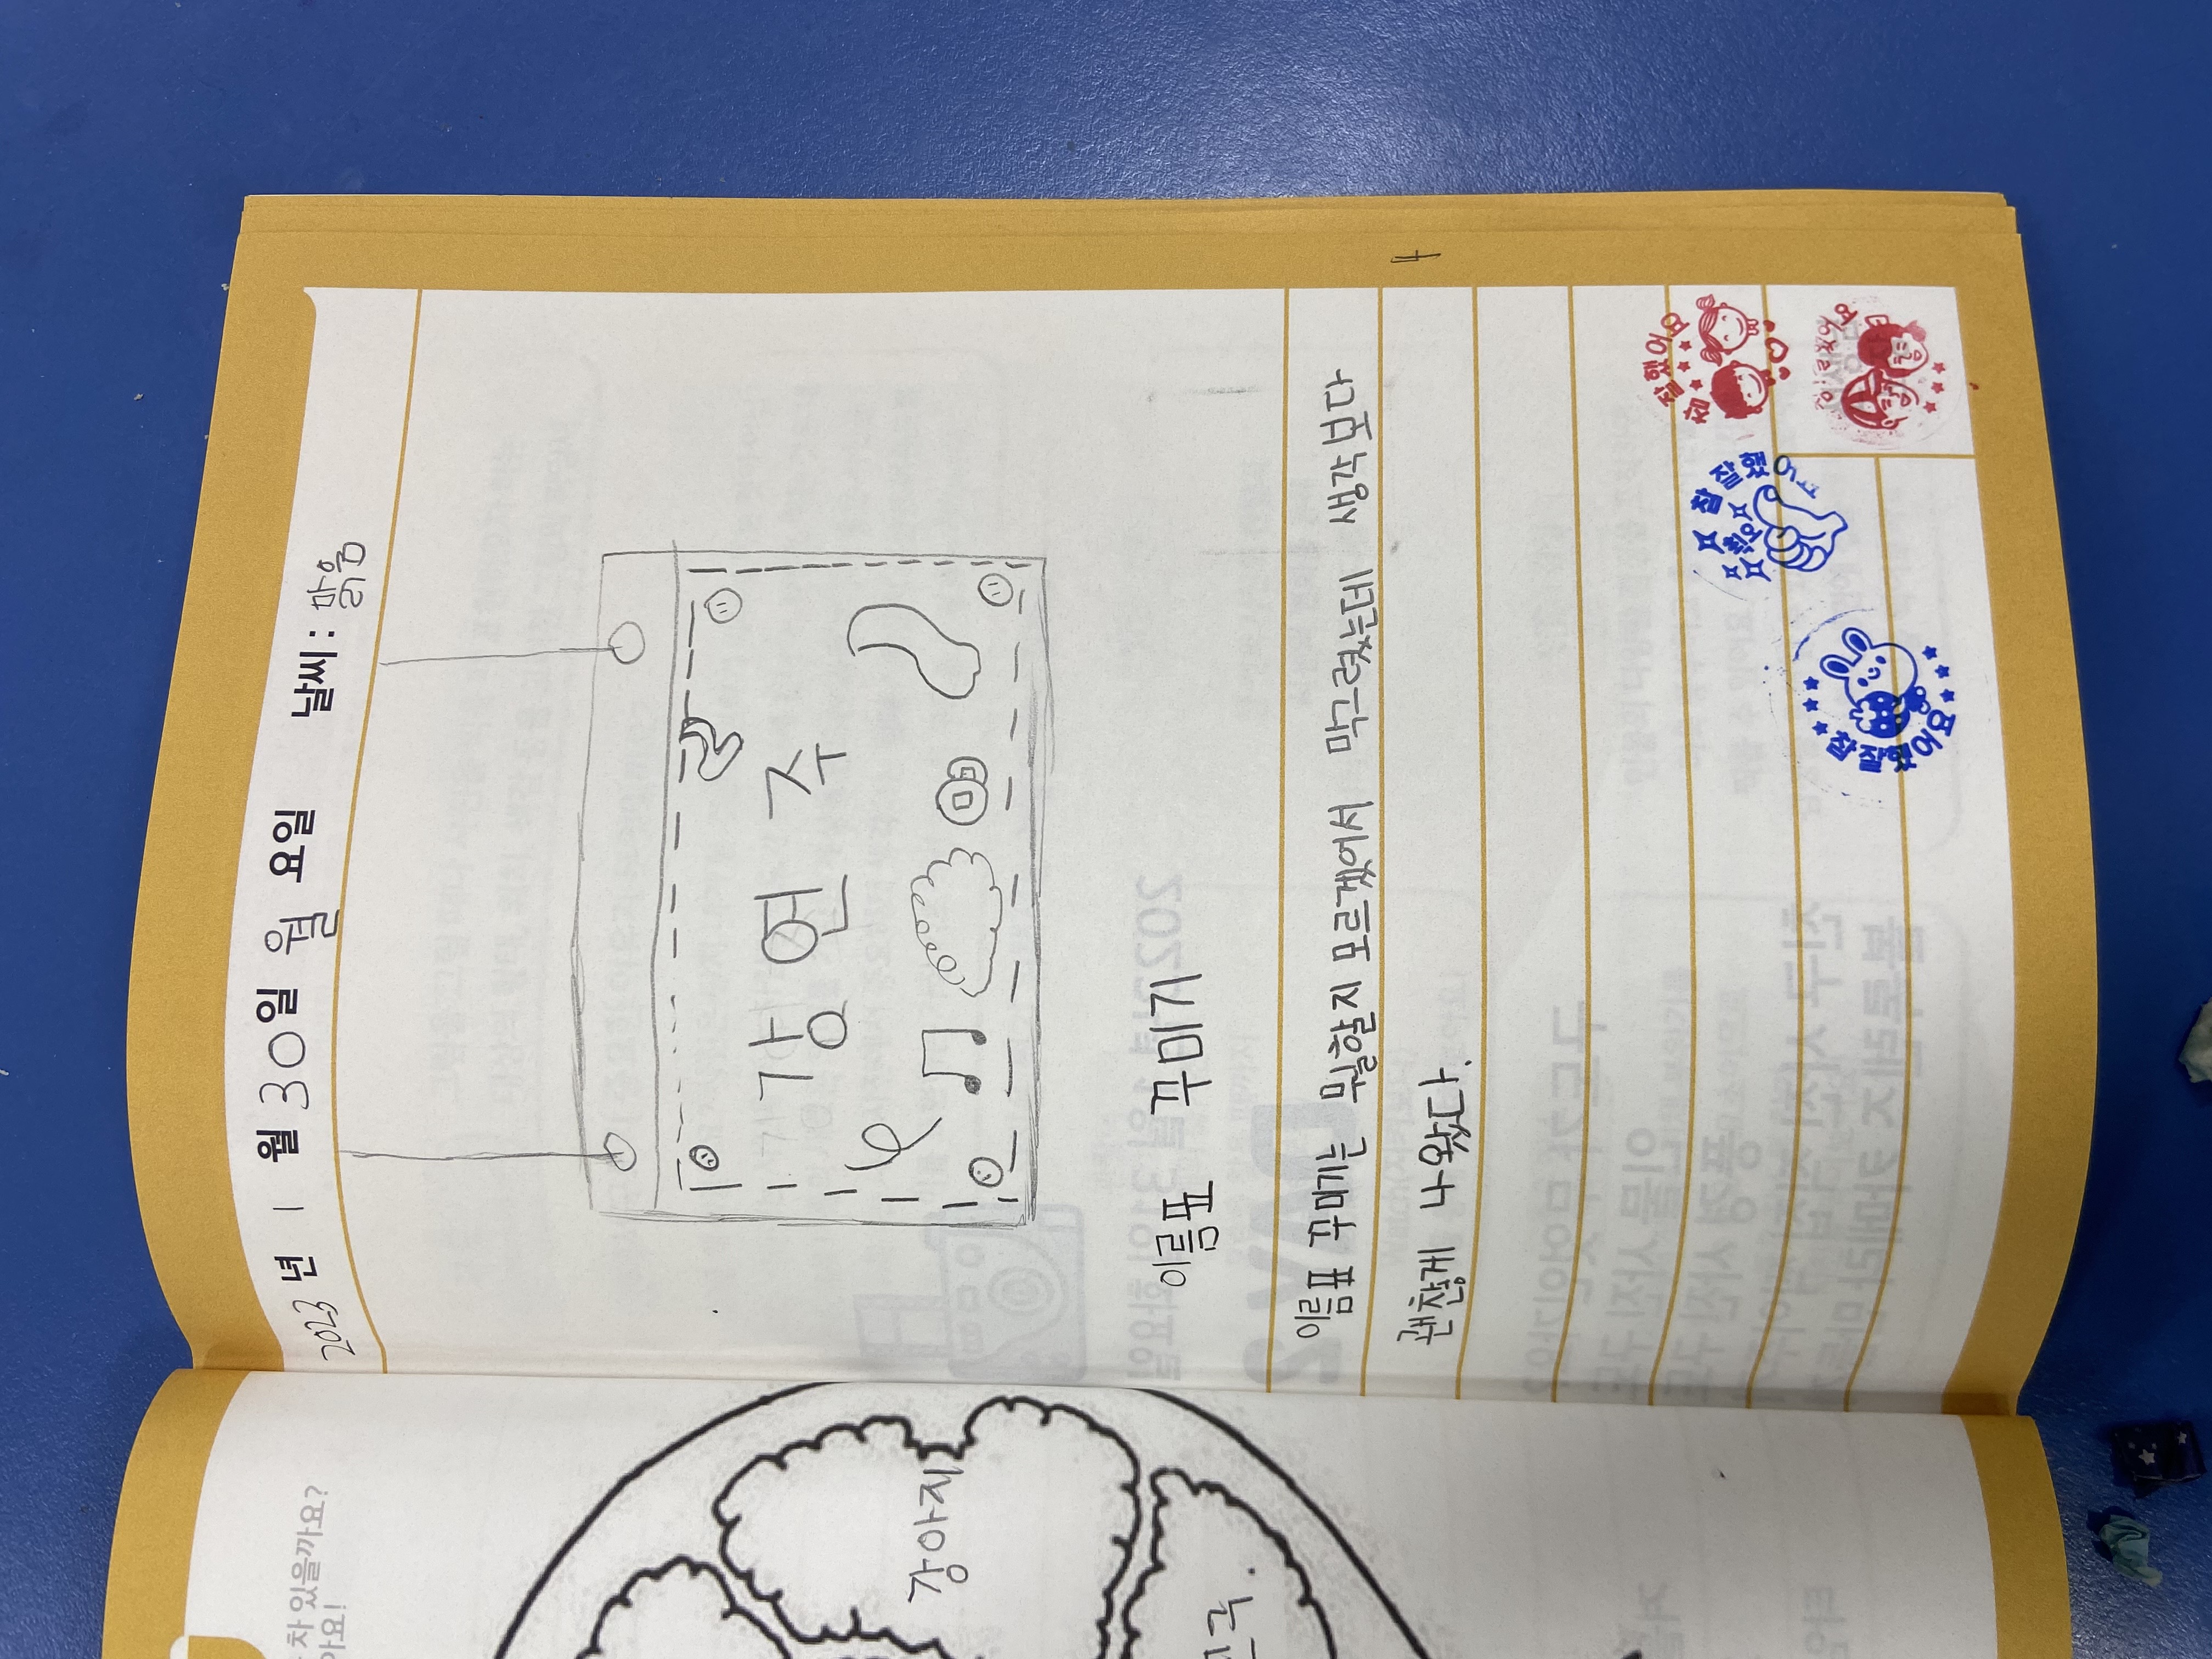 차 있을까요?
아요!
강아지
2023년 1월 30일 월요일 날씨 : 맑음
강연주
이름표 꾸미기
이름표 꾸미기는 뭘할지 모르겠어서 막그렸는데 생각보다
괜찮게 나왔다.
4
참 잘했어요
참 잘했어요